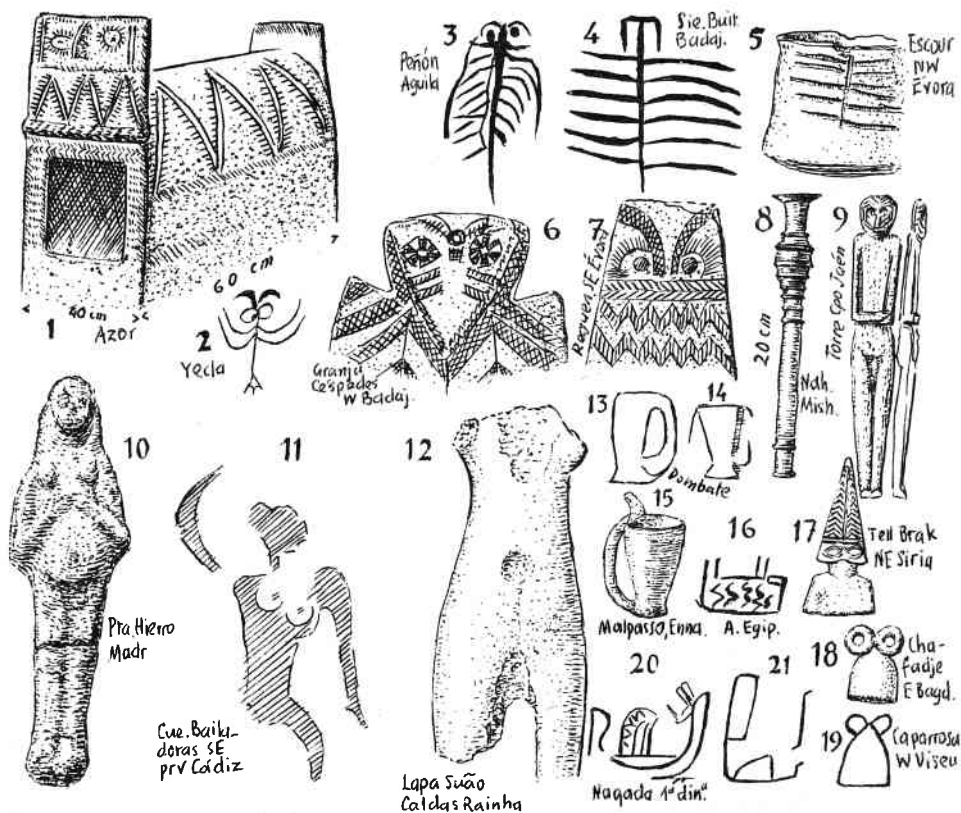 1
40 cm
Azor
60 cm
2
Yecla
3
Peñón
Aguila
4
Sie. Buit.
Badaj.
5
Escour
NW
Évora
6
Granja
Cespedes
W Badaj.
7
SE Évora
8
20 cm
Nah.
Mish.
9
Torre Cpo Jaén
10
Pta. Hierro
Madr
11
Cue. Baila-
doras SE
prv Cádiz
12
Lapa Suão
Caldas Rainha
13
14
Dombate
15
Malpasso, Enna.
16
A. Egip.
17
Tell Brak
NE Siria
18
Cha-
fadje
E Bagd.
19
Caparrosa
W Viseu
20
Nagada 1ª din.
21